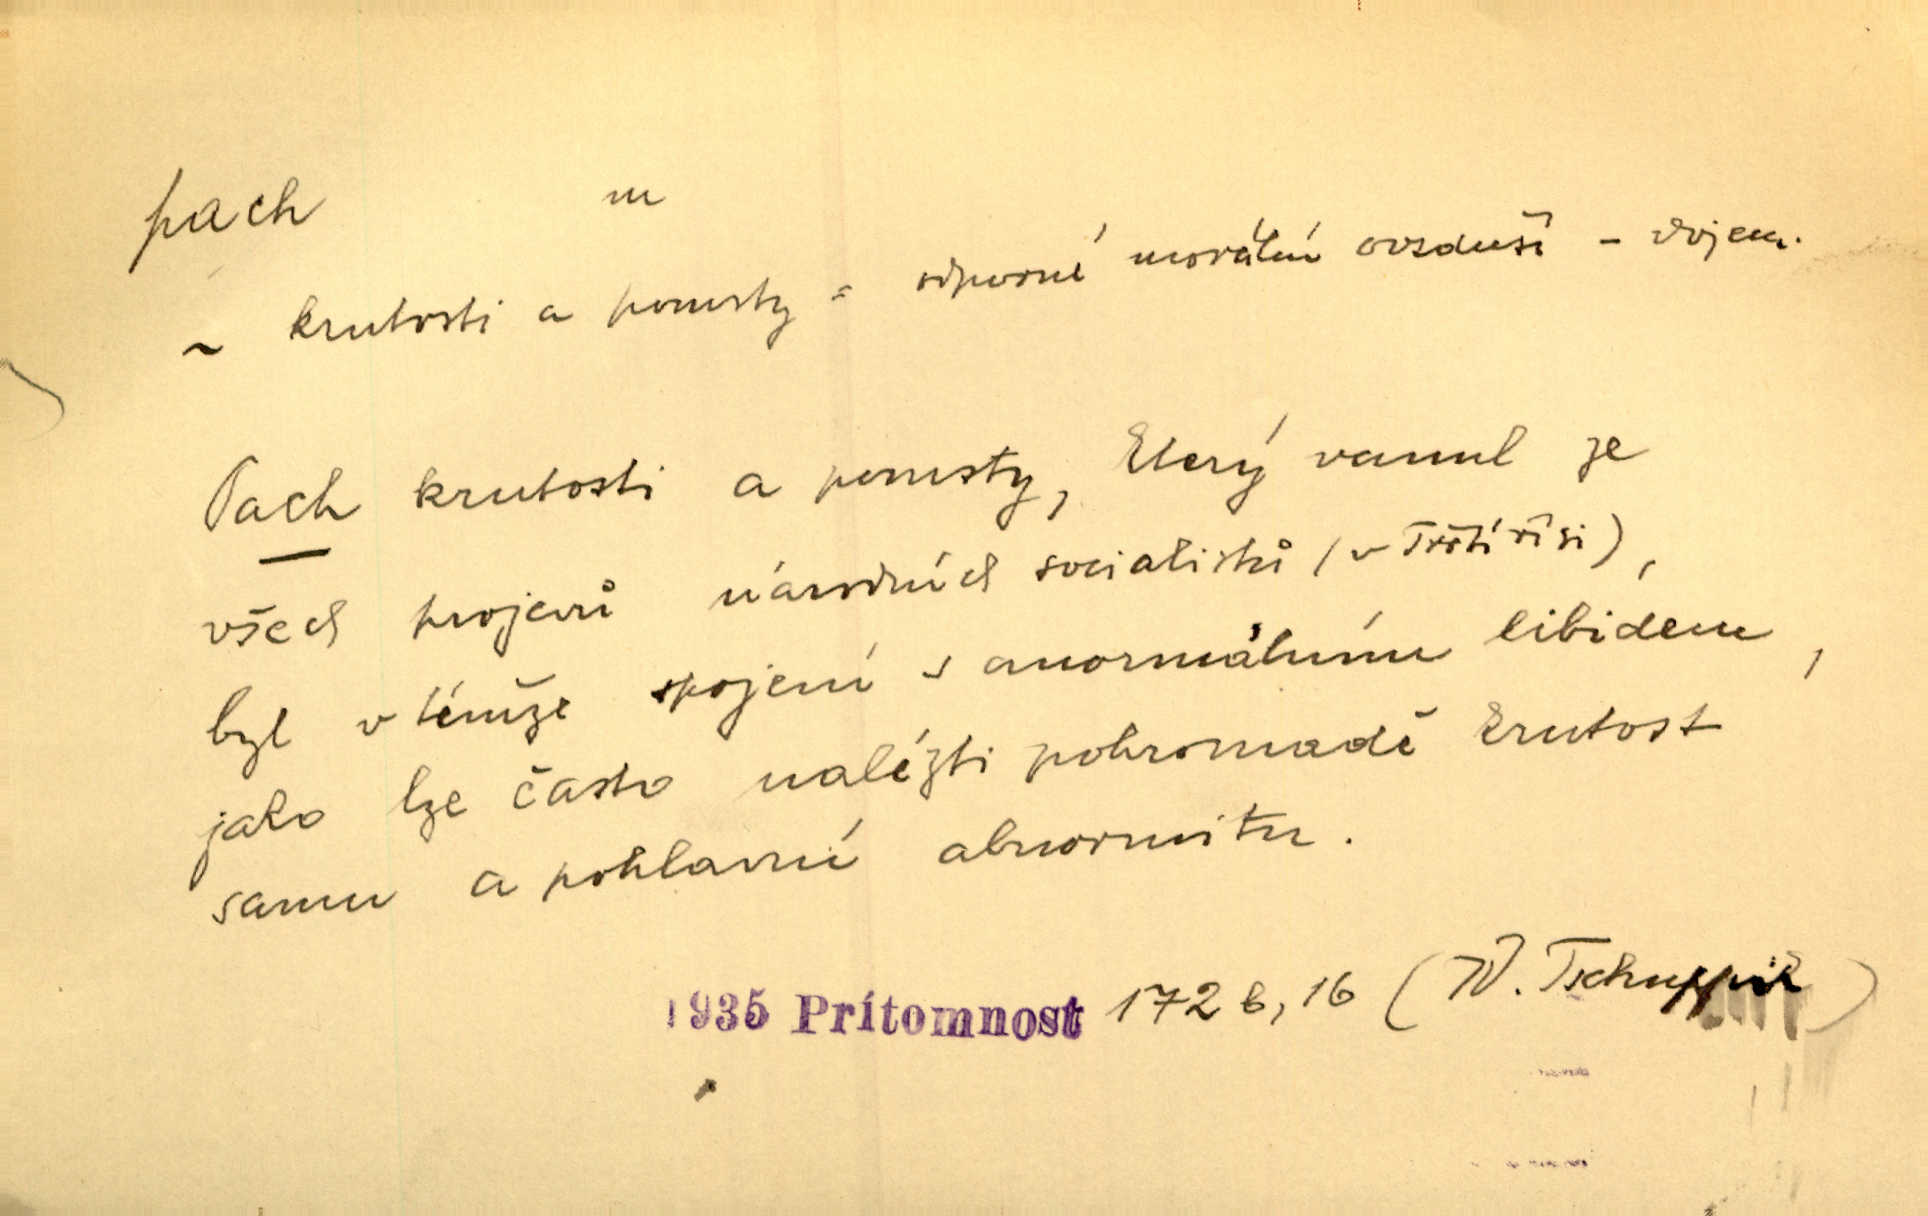 pach m
~ krutosti a pomsty = odporné morální ovzduší - dojem.
Pach krutosti a pomsty, který vanul ze
všech projevů národních socialistů (v Třetí říši),
byl v témže spojení s anormálním libidem,
jako lze často nalézti pohromadě krutost
samu a pohlavní abnormitu.
1935 Prítomnost 172 b, 16 (W. Tschuppik)